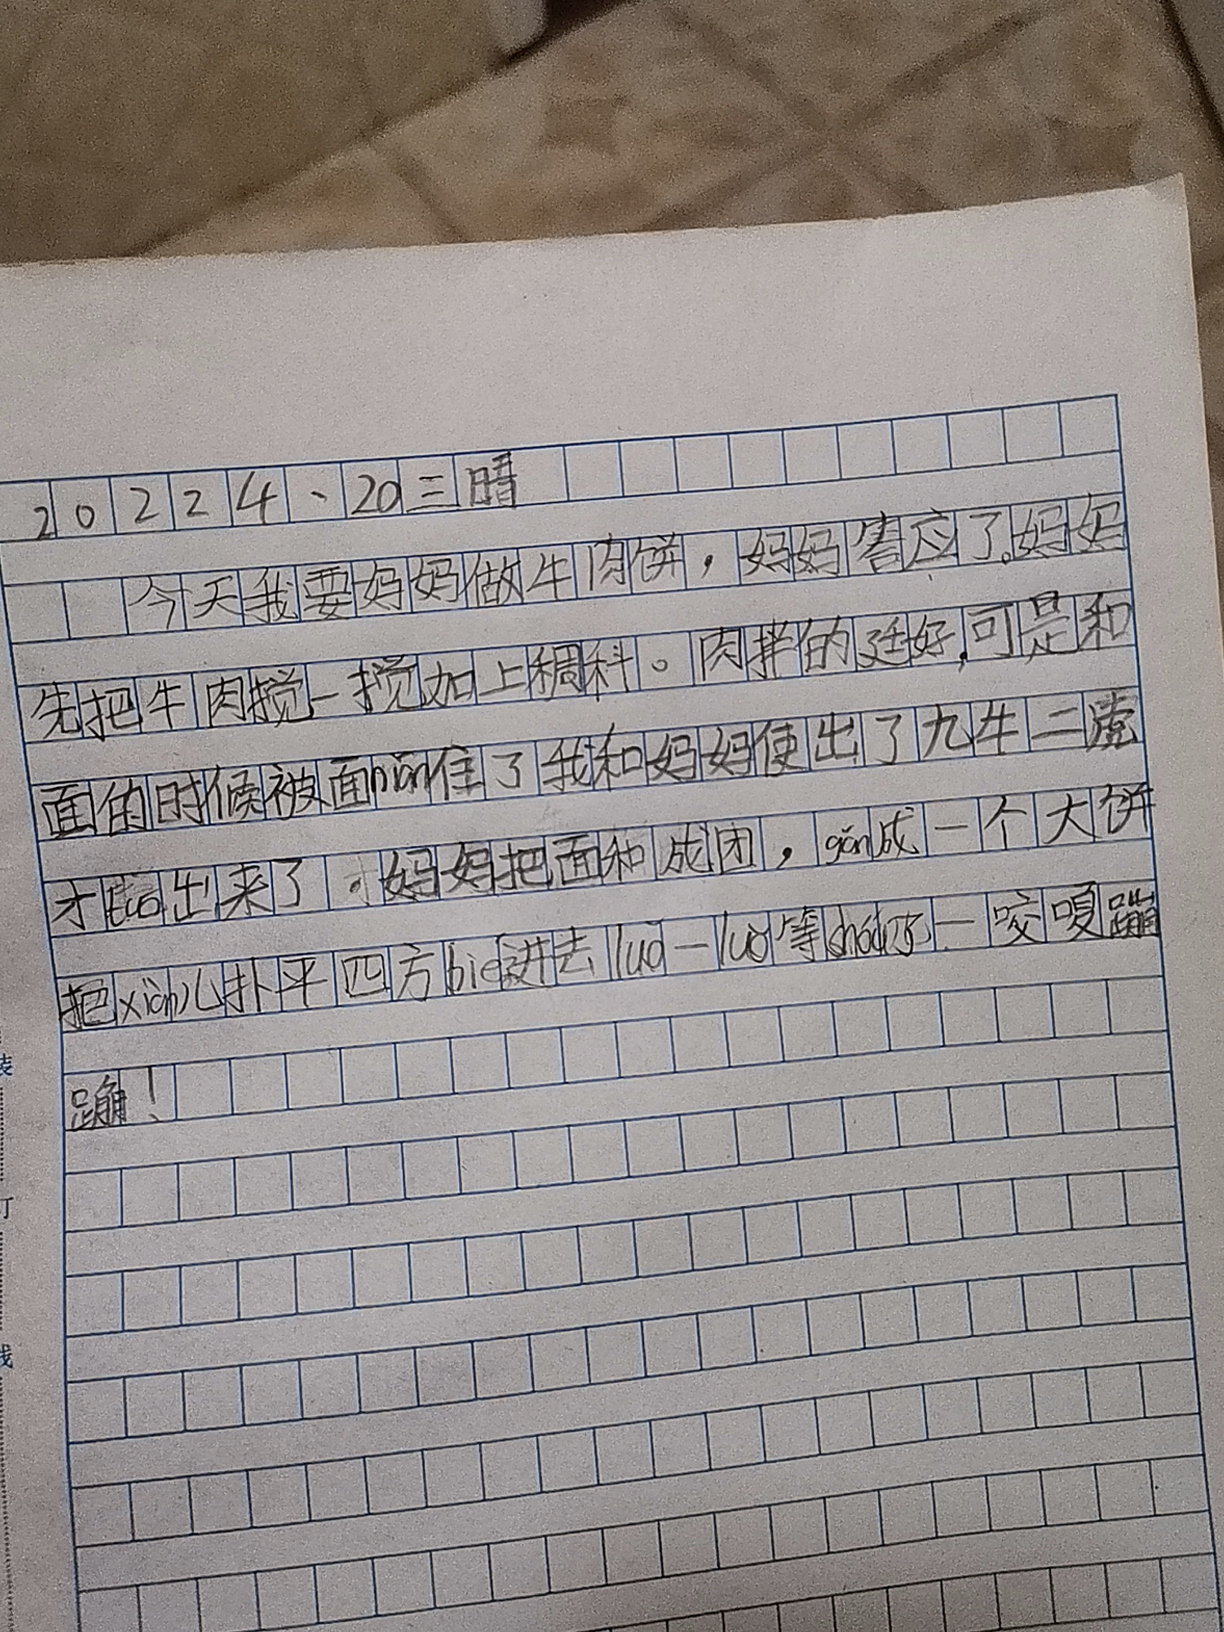 2022 4、20三晴
今天我要妈妈做牛肉饼，妈妈答应了。妈妈
先把牛肉搅一搅加上稠料。肉拌的还好，可是和
面的时候被面nián住了我和妈妈使出了九牛二虎
才 出来了。妈妈把面和成团，gǎn成一个大饼
把xiàn儿扑平四方biē进去luò一luò等shóu了一咬嘎蹦
蹦！
装
订
线